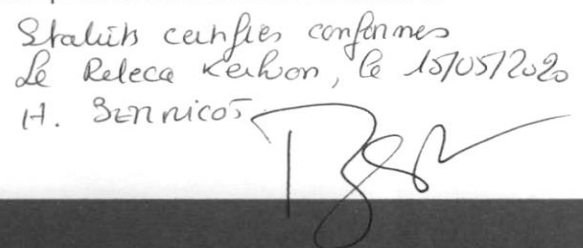 Statuts certifiés conformes
Le Relecq Kerhuon, le 15/05/2020
H. BENNICOT